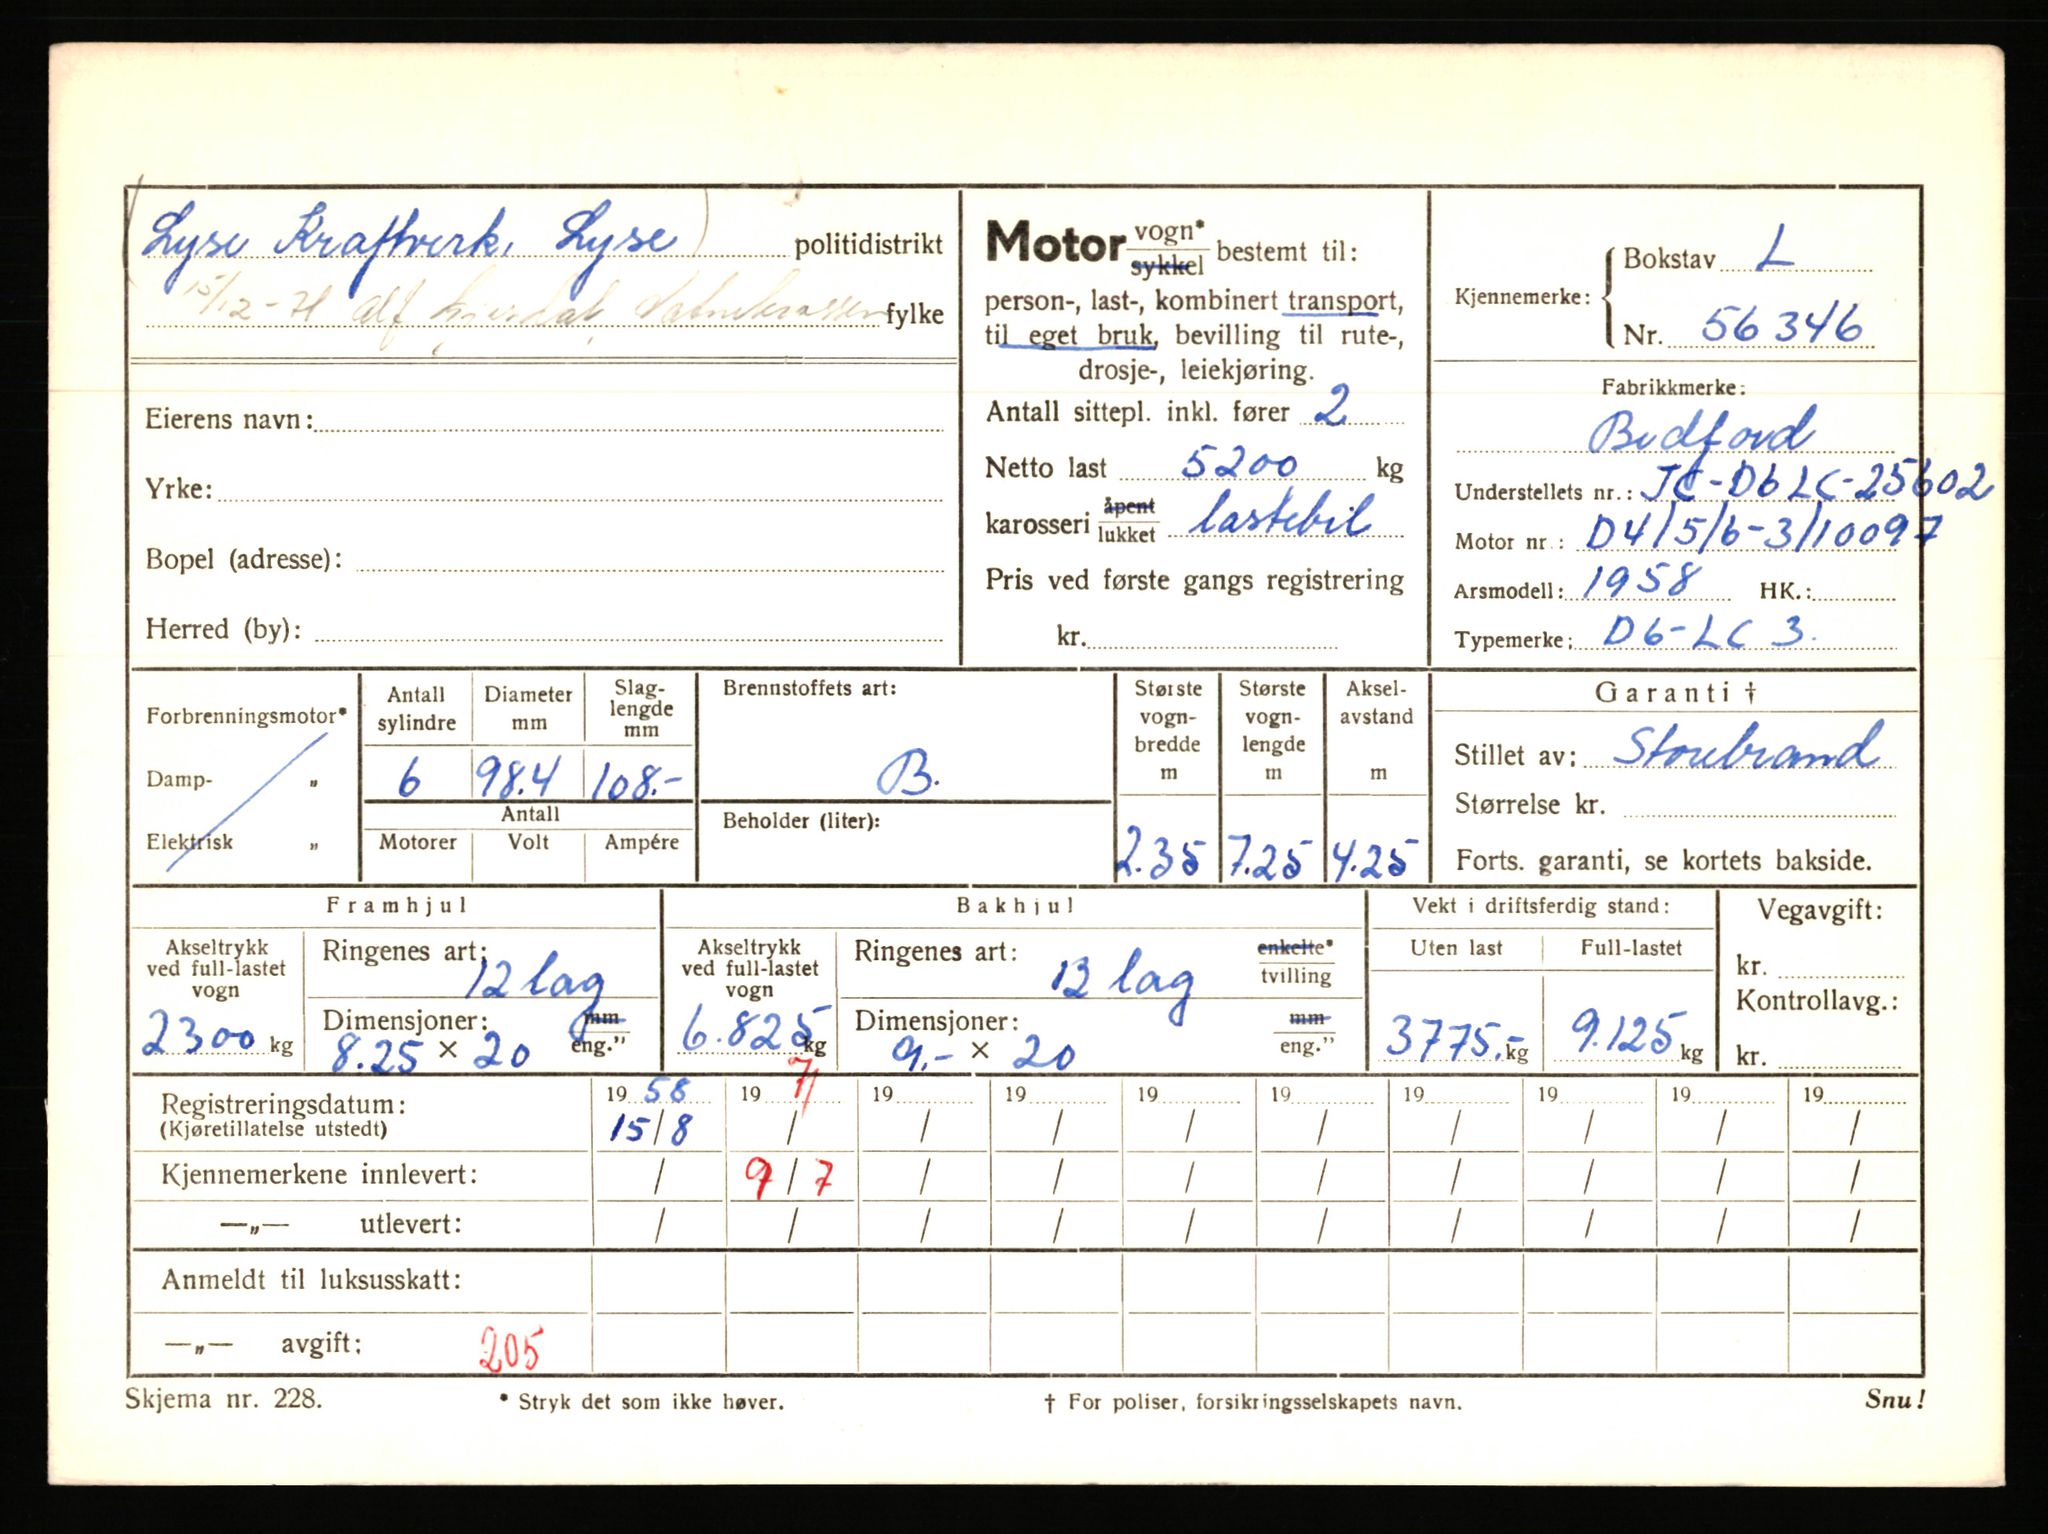 Lyse Kraftverk, Lyse politidistrikt
15/12-71 Alf fylke
Eierens navn:
Yrke:
Bopel (adresse):
Herred (by):
Motor vogn* sykkel bestemt til:
person-, last-, kombinert transport,
til eget bruk, bevilling til rute-,
drosje-, leiekjøring.
Antall sittepl. inkl. fører 2
Netto last 5200 kg
karosseri åpent lukket lastebil
Pris ved første gangs registrering
kr.
Kjennemerke: Bokstav L
Nr. 56346
Fabrikkmerke:
Bedford
Understellets nr.: JC-D6LC-25602
Motor nr.: D4/5/6-3/10097
Arsmodell: 1958 HK.:
Typemerke: D6-LC 3.
Forbrenningsmotor*
Damp- „
Elektrisk „
Antall sylindre
Diameter mm
Slag-lengde mm
6 98.4 108.-
Antall
Motorer Volt Ampére
Brennstoffets art:
B.
Beholder (liter):
Største vogn-bredde m
2.35
Største vogn-lengde m
7.25
Aksel-avstand m
4.25
Garanti †
Stillet av: Storebrand
Størrelse kr.
Forts. garanti, se kortets bakside.
Framhjul
Akseltrykk ved full-lastet vogn
2300 kg
Ringenes art: 12 lag
Dimensjoner: mm
8.25 × 20 eng."
Bakhjul
Akseltrykk ved full-lastet vogn
6.825 kg
Ringenes art: 12 lag enkelte* tvilling
Dimensjoner: mm
9.- × 20 eng."
Vekt i driftsferdig stand:
Uten last Full-lastet
3775.- kg 9.125 kg
Vegavgift:
kr.
Kontrollavg.:
kr.
Registreringsdatum: 19 58 19 71 19 19 19 19 19 19 19 19
(Kjøretillatelse utstedt) 15/8 / / / / / / / / /
Kjennemerkene innlevert: / 9/7 / / / / / / / /
—„— utlevert: / / / / / / / / / /
Anmeldt til luksusskatt:
—„— avgift: 205
Skjema nr. 228. * Stryk det som ikke høver. † For poliser, forsikringsselskapets navn. Snu!